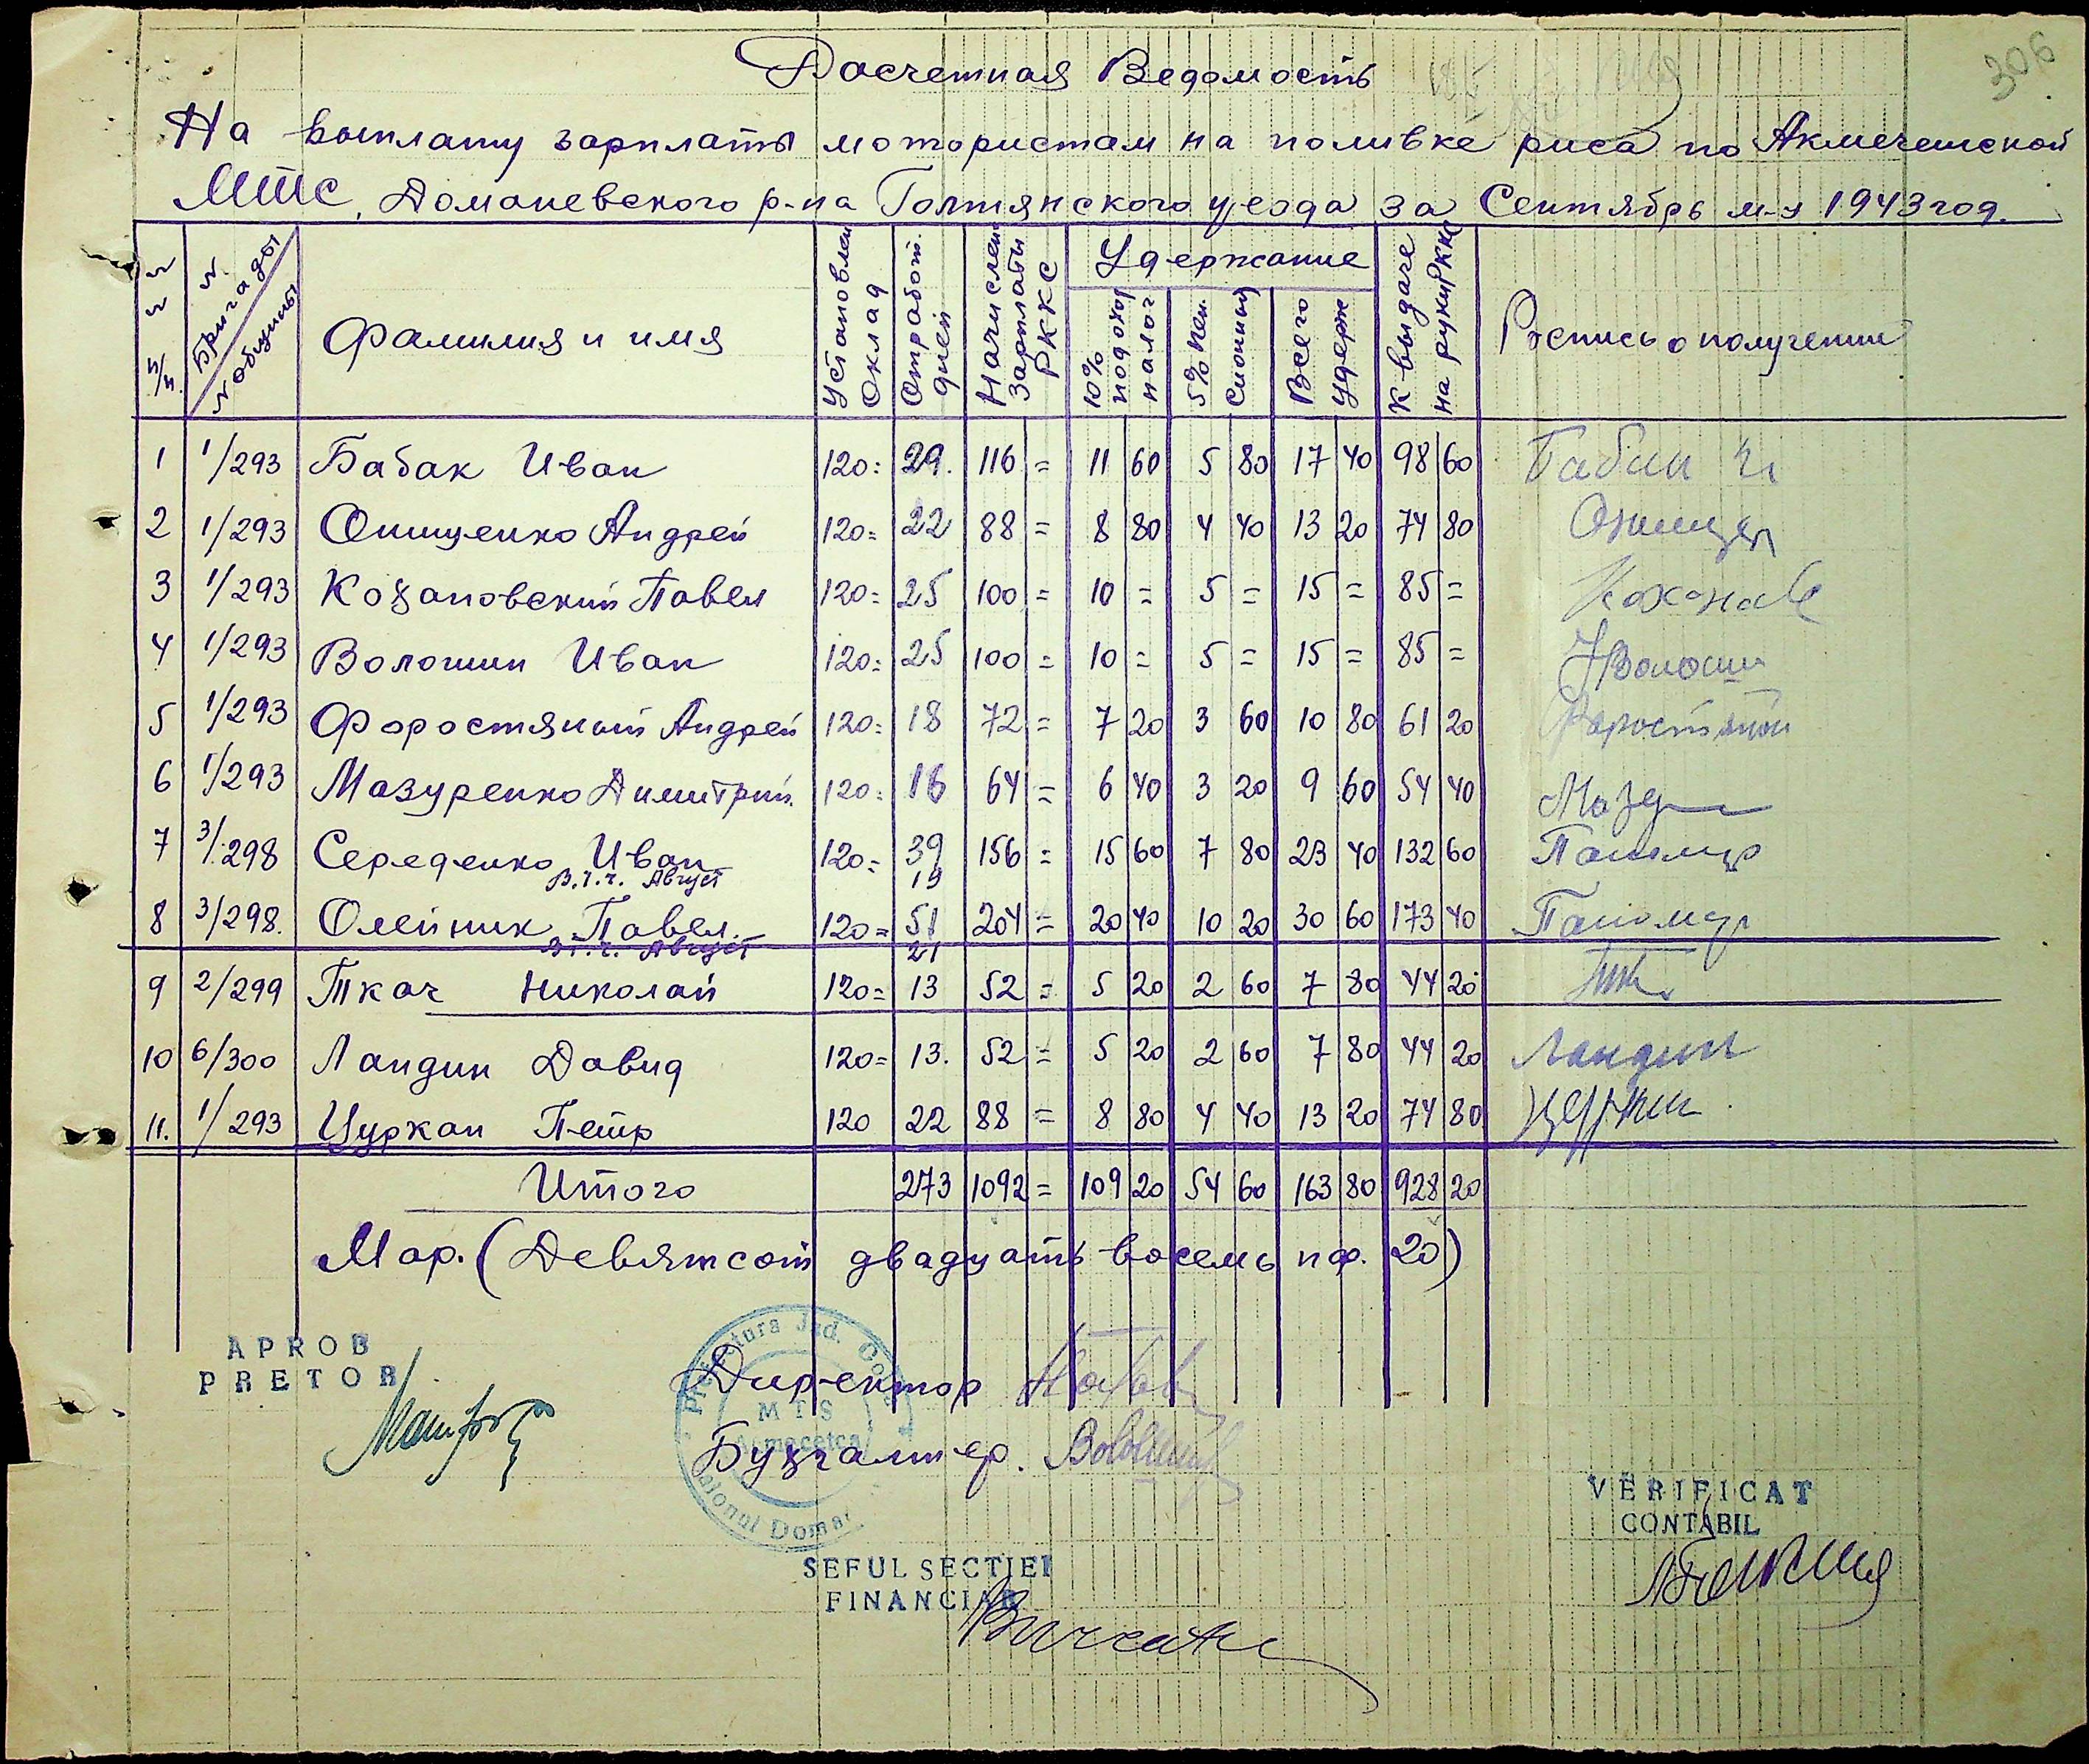 306
Расчетная Ведомость
На выплату зарплаты мотористам на поливке риса по Акмечетской
МТС, Доманевского р-на Голтянского уезда за Сентябрь м-ц 1943 год.
№ № п/п. | № Бригады / № общины | Фамилия и имя | Установлен Оклад | Отработ. дней | Начислен Зарплаты РККС | Удержание | К выдаче на руки РККС | Роспись о получении
10% подоход налог | 5% пен сионный | Всего удерж
1 1/293 Бабак Иван 120= 29. 116 = 11 60 5 80 17 40 98 60
2 1/293 Онищенко Андрей 120= 22 88 = 8 80 4 40 13 20 74 80
3 1/293 Кохановский Павел 120= 25 100 = 10 = 5 = 15 = 85 =
4 1/293 Волошин Иван 120= 25 100 = 10 = 5 = 15 = 85 = Волошин
5 1/293 Форостяный Андрей 120= 18 72 = 7 20 3 60 10 80 61 20
6 1/293 Мазуренко Димитрий. 120= 16 64 = 6 40 3 20 9 60 54 40
7 3/298 Середенко Иван 120= 39 156 = 15 60 7 80 23 40 132 60
В.т.ч. Август 19
8 3/298. Олейник Павел. 120= 51 204 = 20 40 10 20 30 60 173 40
В т.ч. Август 21
9 2/299 Ткач Николай 120= 13 52 = 5 20 2 60 7 80 44 20
10 6/300 Ландин Давид 120= 13. 52 = 5 20 2 60 7 80 44 20 Ландин
11. 1/293 Цуркан Петр 120 22 88 = 8 80 4 40 13 20 74 80
Итого 273 1092 = 109 20 54 60 163 80 928 20
Мар. (Девятсот двадцать восемь пф. 20)
APROB
PRETOR
Prefectura Jud.
MTS
Директор
Бухгалтер.
VERIFICAT
CONTABIL
SEFUL SECTIEI
FINANCIAR